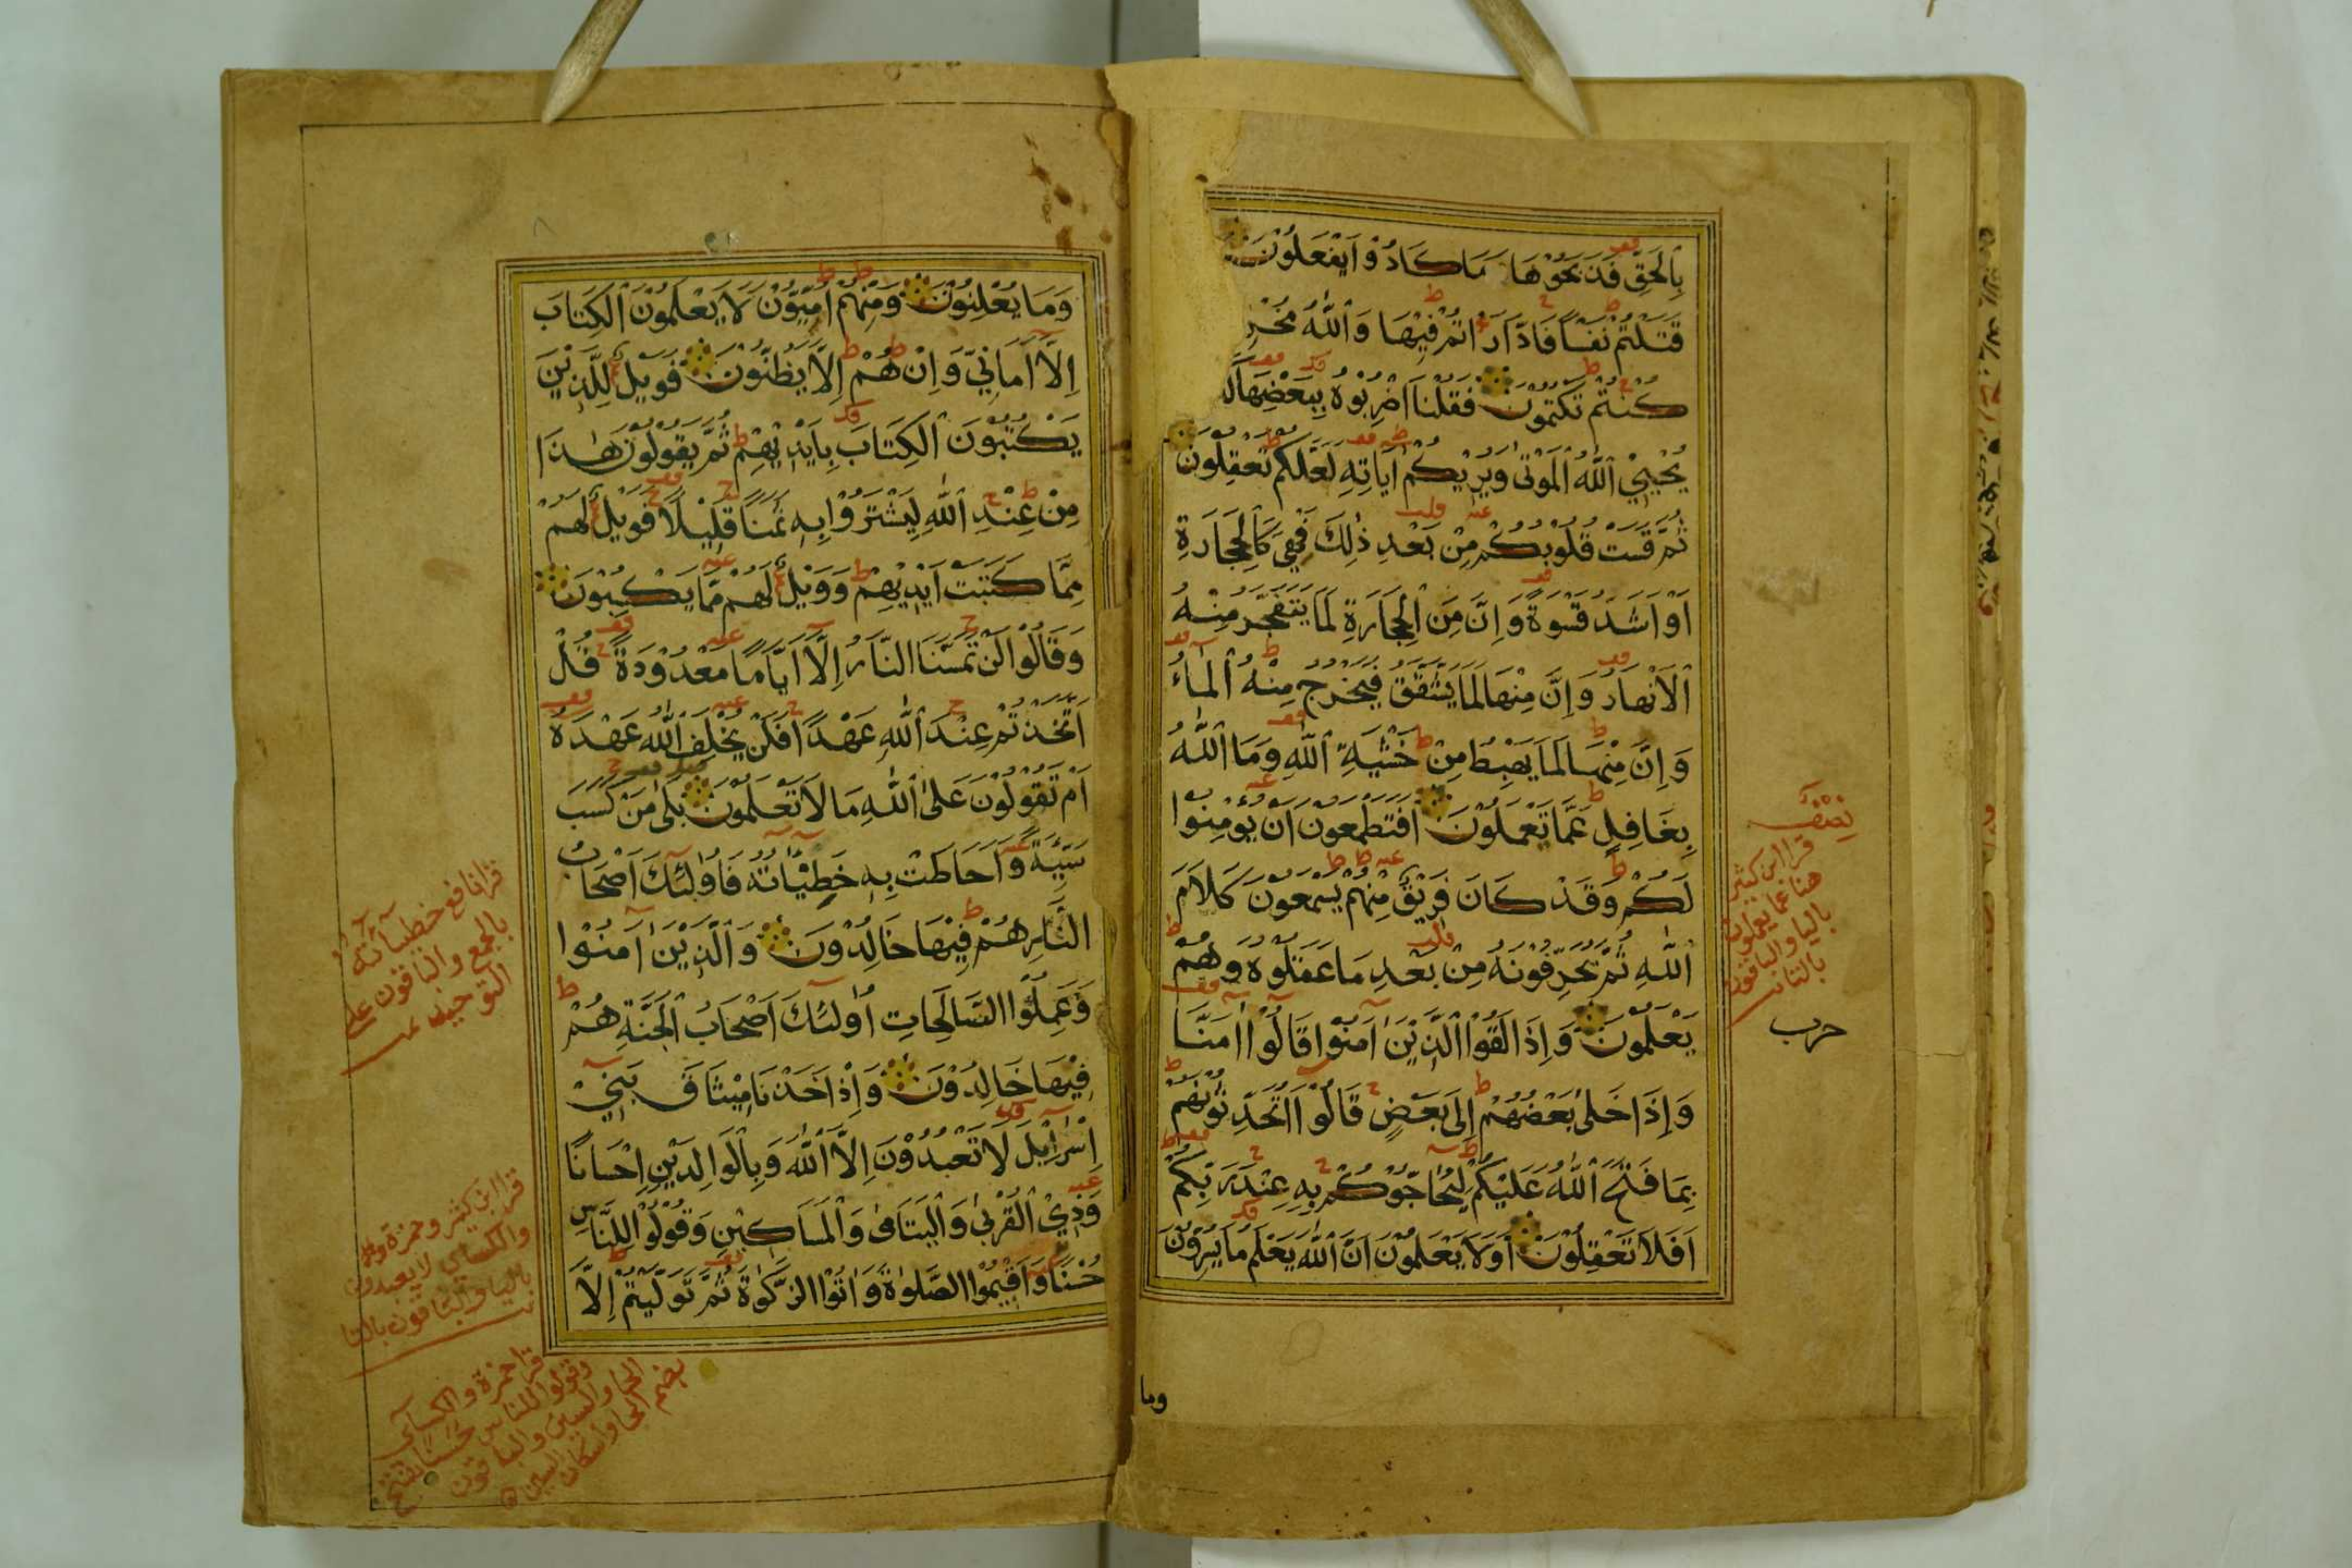 بِالْحَقِّ فَذَبَحُوْهَا وَمَا كَادُوْا يَفْعَلُوْنَ
قَتَلْتُمْ نَفْسًا فَادَّارَأْتُمْ فِيْهَا وَاللّٰهُ مُخْرِ
كُنْتُمْ تَكْتُمُوْنَ فَقُلْنَا اضْرِبُوْهُ بِبَعْضِهَا
يُحْيِي اللّٰهُ الْمَوْتٰى وَيُرِيْكُمْ اٰيَاتِهِ لَعَلَّكُمْ تَعْقِلُوْنَ
ثُمَّ قَسَتْ قُلُوْبُكُمْ مِنْ بَعْدِ ذٰلِكَ فَهِيَ كَالْحِجَارَةِ
اَوْ اَشَدُّ قَسْوَةً وَاِنَّ مِنَ الْحِجَارَةِ لَمَا يَتَفَجَّرُ مِنْهُ
الْاَنْهَارُ وَاِنَّ مِنْهَا لَمَا يَشَّقَّقُ فَيَخْرُجُ مِنْهُ الْمَاۤءُ
وَاِنَّ مِنْهَا لَمَا يَهْبِطُ مِنْ خَشْيَةِ اللّٰهِ وَمَا اللّٰهُ
بِغَافِلٍ عَمَّا تَعْمَلُوْنَ اَفَتَطْمَعُوْنَ اَنْ يُؤْمِنُوْا
لَكُمْ وَقَدْ كَانَ فَرِيْقٌ مِنْهُمْ يَسْمَعُوْنَ كَلَامَ
اللّٰهِ ثُمَّ يُحَرِّفُوْنَهُ مِنْ بَعْدِ مَا عَقَلُوْهُ وَهُمْ
يَعْلَمُوْنَ وَاِذَا لَقُوا الَّذِيْنَ اٰمَنُوْا قَالُوْا اٰمَنَّا
وَاِذَا خَلٰى بَعْضُهُمْ اِلٰى بَعْضٍ قَالُوْا اَتُحَدِّثُوْنَهُمْ
بِمَا فَتَحَ اللّٰهُ عَلَيْكُمْ لِيُحَاجُّوْكُمْ بِهِ عِنْدَ رَبِّكُمْ
اَفَلَا تَعْقِلُوْنَ اَوَلَا يَعْلَمُوْنَ اَنَّ اللّٰهَ يَعْلَمُ مَا يُسِرُّوْنَ
نِصْفٌ
قرا ابن كثير
هنا عما يعملون
باليا والباقون
بالتا
حزب
وما
وَمَا يُعْلِنُوْنَ وَمِنْهُمْ اُمِّيُّوْنَ لَا يَعْلَمُوْنَ الْكِتَابَ
اِلَّا اَمَانِيَّ وَاِنْ هُمْ اِلَّا يَظُنُّوْنَ فَوَيْلٌ لِلَّذِيْنَ
يَكْتُبُوْنَ الْكِتَابَ بِاَيْدِيْهِمْ ثُمَّ يَقُوْلُوْنَ هٰذَا
مِنْ عِنْدِ اللّٰهِ لِيَشْتَرُوْا بِهِ ثَمَنًا قَلِيْلًا فَوَيْلٌ لَهُمْ
مِمَّا كَتَبَتْ اَيْدِيْهِمْ وَوَيْلٌ لَهُمْ مِمَّا يَكْسِبُوْنَ
وَقَالُوْا لَنْ تَمَسَّنَا النَّارُ اِلَّا اَيَّامًا مَعْدُوْدَةً قُلْ
اَتَّخَذْتُمْ عِنْدَ اللّٰهِ عَهْدًا فَلَنْ يُخْلِفَ اللّٰهُ عَهْدَهُ
اَمْ تَقُوْلُوْنَ عَلَى اللّٰهِ مَا لَا تَعْلَمُوْنَ بَلٰى مَنْ كَسَبَ
سَيِّئَةً وَاَحَاطَتْ بِهِ خَطِيْئَاتُهُ فَاُولٰئِكَ اَصْحَابُ
النَّارِ هُمْ فِيْهَا خَالِدُوْنَ وَالَّذِيْنَ اٰمَنُوْا
وَعَمِلُوا الصَّالِحَاتِ اُولٰئِكَ اَصْحَابُ الْجَنَّةِ هُمْ
فِيْهَا خَالِدُوْنَ وَاِذْ اَخَذْنَا مِيْثَاقَ بَنِيْ
اِسْرَاۤئِيْلَ لَا تَعْبُدُوْنَ اِلَّا اللّٰهَ وَبِالْوَالِدَيْنِ اِحْسَانًا
وَذِي الْقُرْبٰى وَالْيَتَامٰى وَالْمَسَاكِيْنِ وَقُوْلُوْا لِلنَّاسِ
حُسْنًا وَاَقِيْمُوا الصَّلٰوةَ وَاٰتُوا الزَّكٰوةَ ثُمَّ تَوَلَّيْتُمْ اِلَّا
قرا نافع خطيآته
بالجمع والباقون على
التوحيد
قرا ابن كثير وحمزة
والكسائي لا يعبدون
باليا والباقون بالتا
قرا حمزة والكسآئي
وقولوا للناس حسنا بفتح
الحا والسين والباقون
بضم الحا واسكان السين